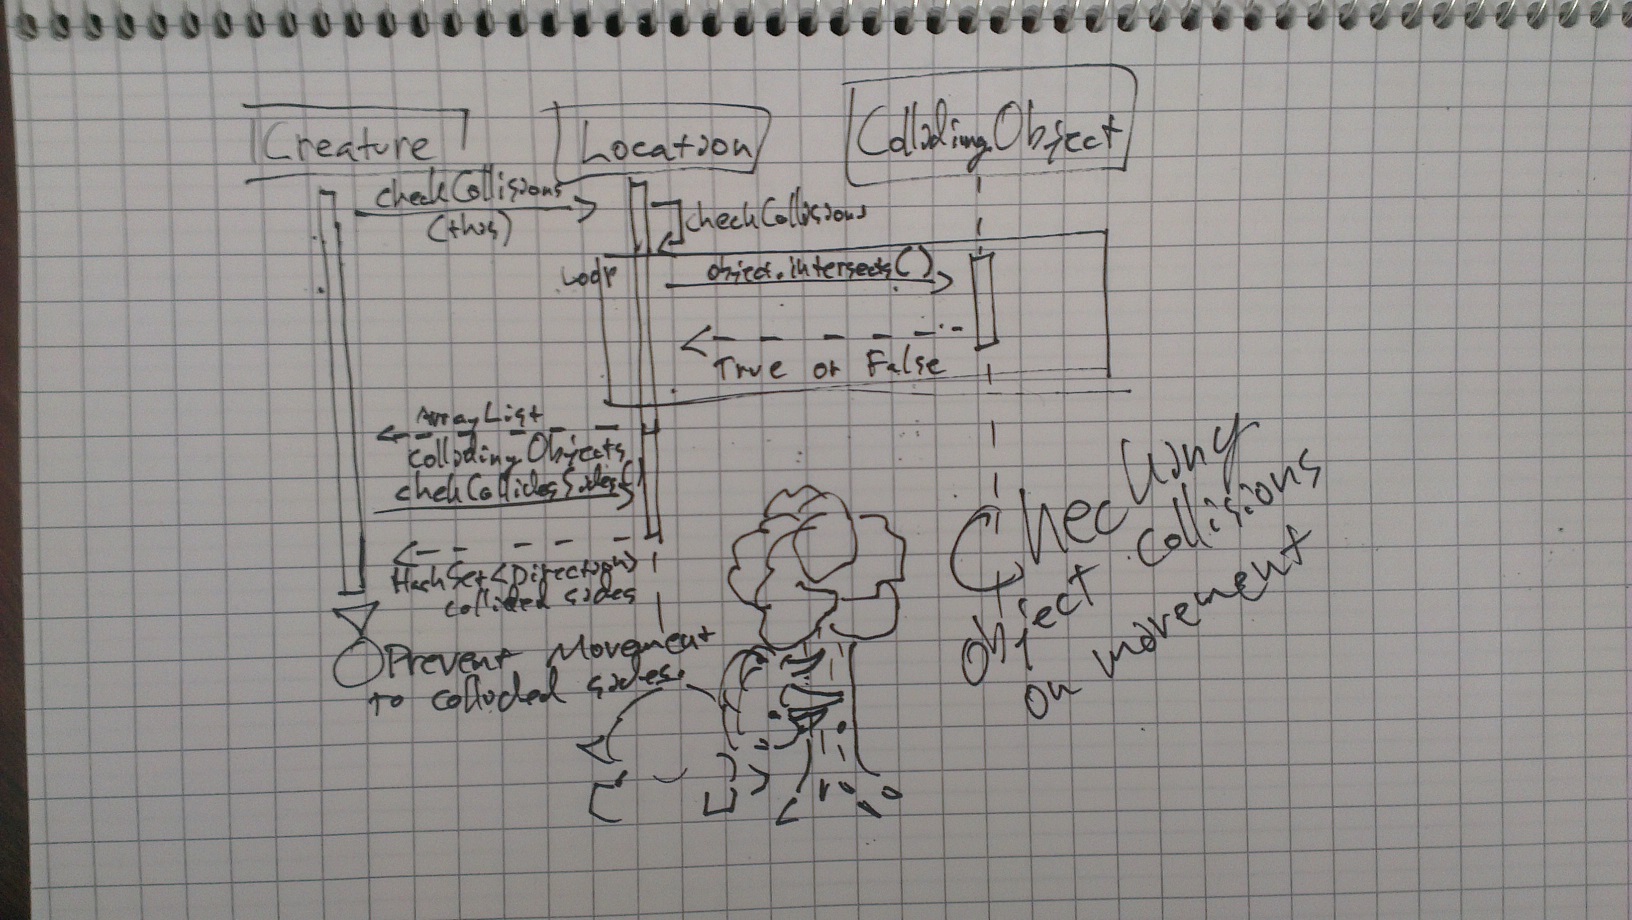 Creature
Location
CollidingObject
checkCollisions
(this)
checkCollisions
Loop
object.intersects()
True or False
ArrayList
collidingObjects
chekCollidesSides()
HashSet<Direction>
collided sides
Prevent Movement
to collided sides.
Checking
object collisions
on movement